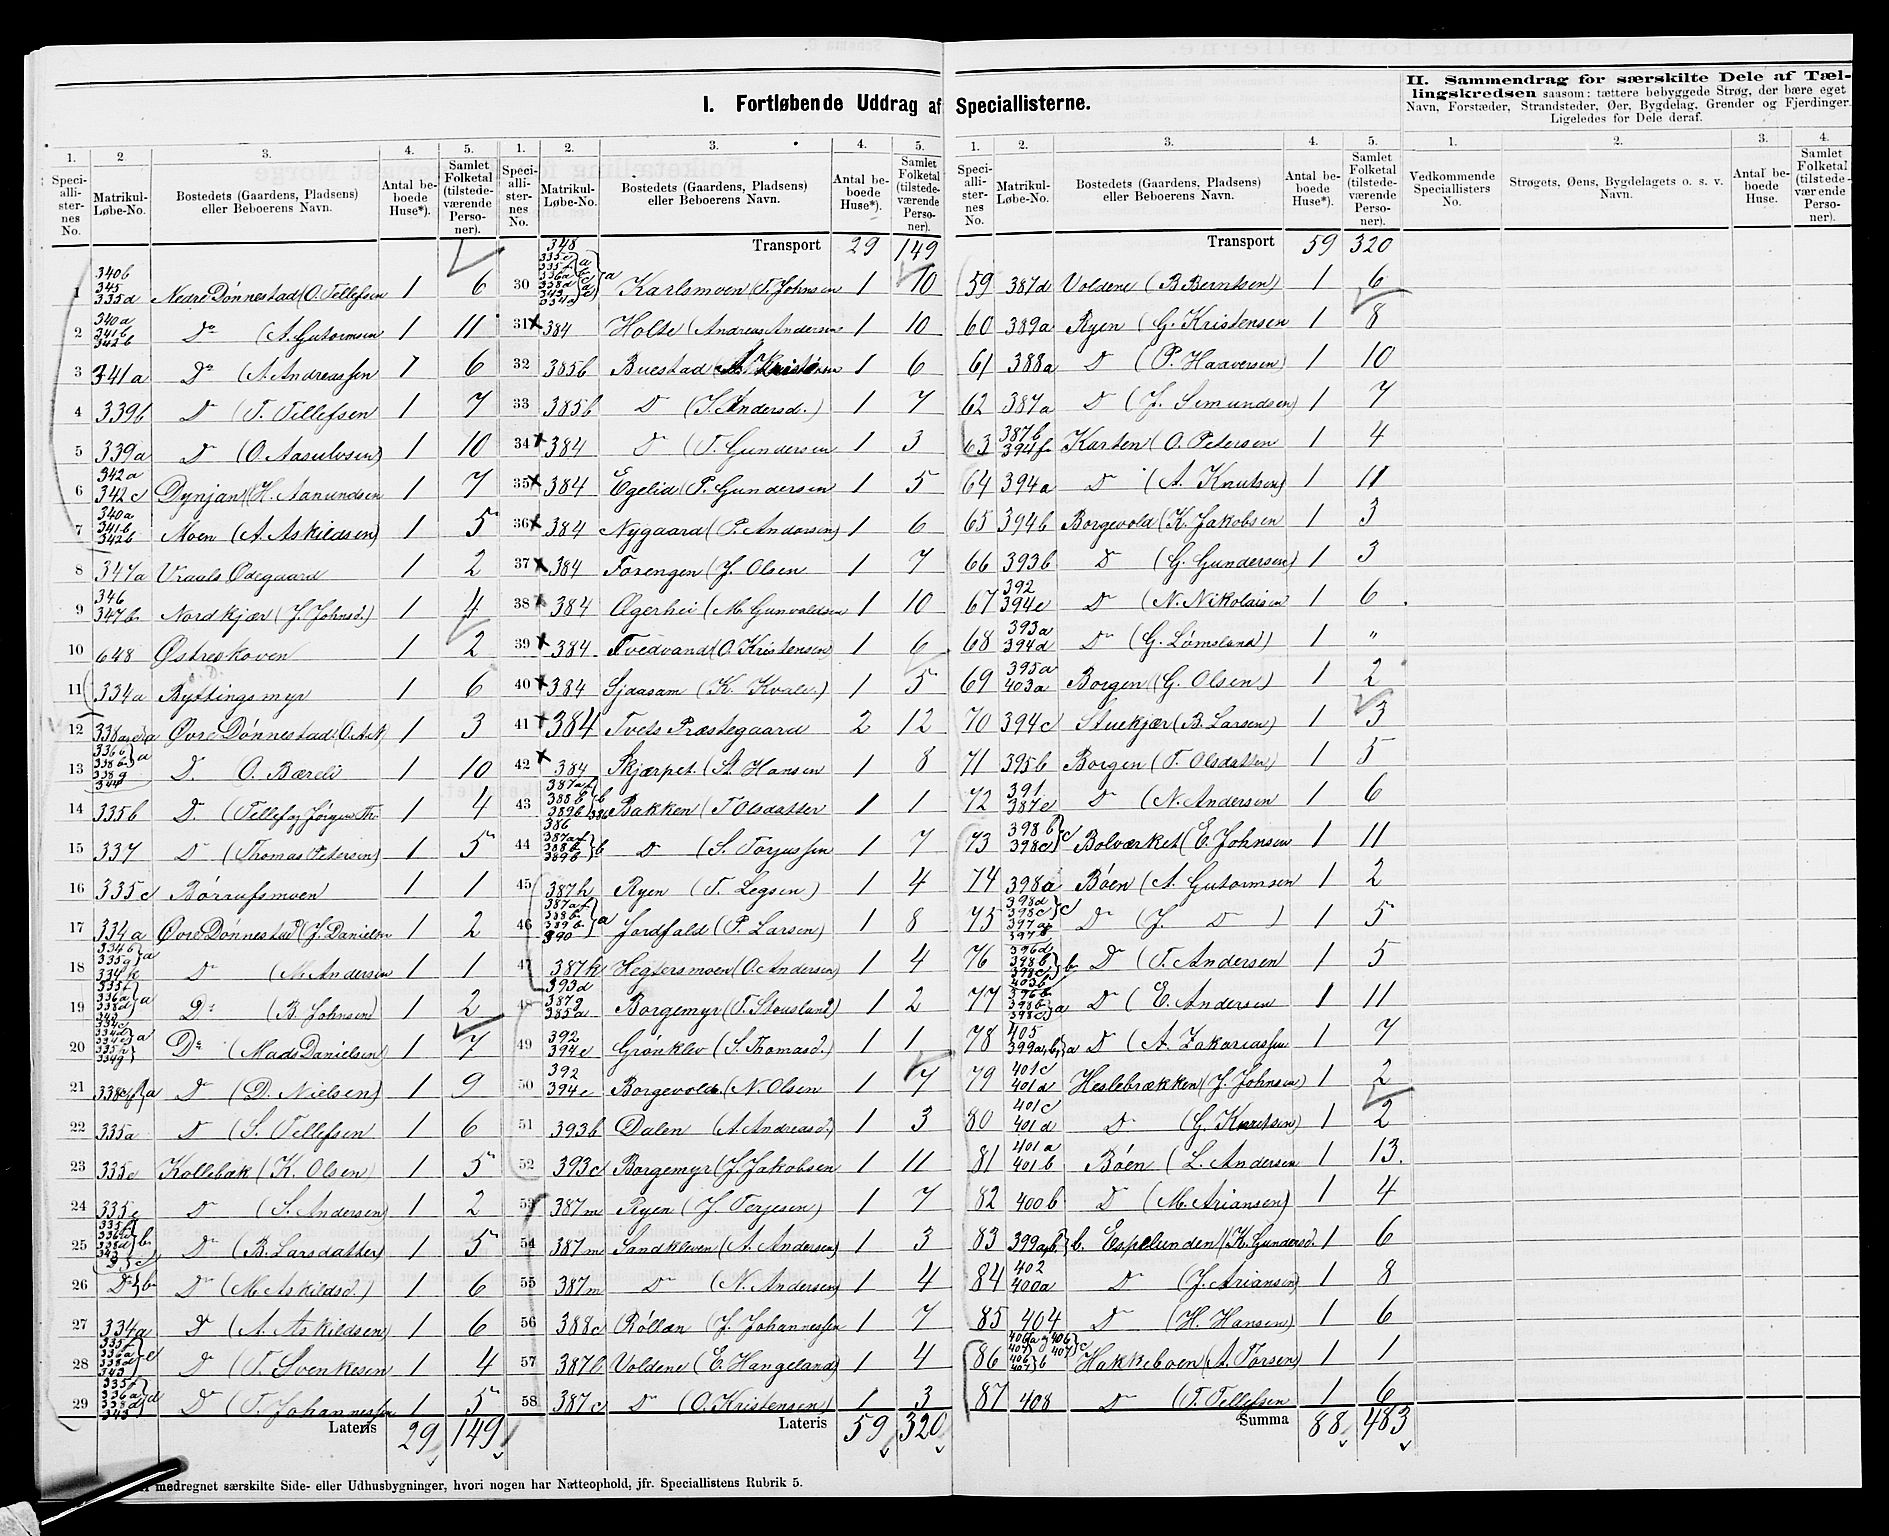 I. Fortløbende Uddrag af Speciallisterne.
II. Sammendrag for særskilte Dele af Tællingskredsen saasom: tættere bebyggede Strøg, der bære eget Navn, Forstæder, Strandsteder, Øer, Bygdelag, Grender og Fjerdinger. Ligeledes for Dele deraf.
1. 2 3. 4. 5. 1. 2. 3. 4. 5. 1. 2. 3. 4. 5. 1. 2. 3. 4.
Speciallisternes No. Matrikul-Løbe-No. Bostedets (Gaardens, Pladsens) eller Beboerens Navn. Antal beboede Huse*). Samlet Folketal (tilstedeværende Personer).
Speciallisternes No. Matrikul-Løbe-No. Bostedets (Gaardens, Pladsens) eller Beboerens Navn. Antal beboede Huse*). Samlet Folketal (tilstedeværende Personer).
Speciallisternes No. Matrikul-Løbe-No. Bostedets (Gaardens, Pladsens) eller Beboerens Navn. Antal beboede Huse*). Samlet Folketal (tilstedeværende Personer).
Vedkommende Speciallisters No. Strøgets, Øens, Bygdelagets o. s. v. Navn. Antal beboede Huse. Samlet Folketal (tilstedeværende Personer).
1 340b 345 335d Nedre Dønnestad (O. Tellefsen 1 6
2 340a 341b 342b Do (A. Gutormsen 1 11
3 341a Do (A. Andreassen 1 6
4 339b D (T. Tellefsen 1 7
5 339a D (O. Aasulvsen) 1 10
6 342a 342c Dynjan (H. Aanundsen 1 7
7 340a 341b 342b Moen (A. Askildsen) 1 5
8 347a Vraals Ødegaard 1 2
9 346 347b Nordkjær (J. Johnsd.) 1 4
10 648 Østreskoven 1 2
11 334a Byttingsmyr 1 6
12 Øvre Dønnestad (O. Ask 1 3
13 D. O. Bærdi 1 10
14 335b D. (Tellef og Jørgen Th. 1 4
15 337 D (Thomas Petersen) 1 5
16 335c Børrufsmoen 1 1
17 334a Øvre Dønnestad (J. Danielsen 1 2
18 D (M. Andersen 1 1
19 Do (B. Johnsen) 1 2
20 Do (Mads Danielsen) 1 7
21 D (D. Nielsen) 1 9
22 335a D (S. Tellefsen 1 6
23 335e Kollebak (K. Olsen) 1 5
24 335e D (S. Andersen) 1 2
25 D (B. Larsdatter) 1 5
26 D (M. Askildsd.) 1 6
27 334a D (A. Askildsen) 1 6
28 D (T. Svenkesen 1 4
29 D (T. Johannessen 1 5
Lateris 29 149
Transport 29 149
30 Karlsmoen (T. Johnsen 1 10
31 x 384 Holte (Andreas Andersen 1 10
32 385b Buestad 1 6
33 385b D (S. Andersd.) 1 7
34 x 384 D (T. Gundersen 1 3
35 x 384 Egelid (P. Gundersen 1 5
36 x 384 Nygaard (P. Andersen) 1 6
37 x 384 Forengen (J. Olsen 1 7
38 x 384 Øgerhei (M. Gunvaldsen 1 10
39 x 384 Tvedvand (O. Kristensen) 1 6
40 x 384 Sjaasam (K. Kvalv.) 1 5
41 x 384 Tvets Præstegaard 2 12
42 x 384 Skjærpet (A. Hansen 1 8
43 Bakken (T Olsdatter 1 1
44 D (S. Torjussen 1 7
45 387h Ryen (T. Legsen) 1 4
46 Jordfald (P. Larsen) 1 8
47 387k Hegtersmoen (O. Andersen) 1 4
48 393d 387g 385a Borgemyr (T. Stousland) 1 2
49 392 394e Grønklev (S. Thomasd.) 1 1
50 392 394e Borgevold (N. Olsen 1 7
51 393b Dalen (A. Andreasd.) 1 3
52 393c Borgemyr (J. Jakobsen 1 11
53 387m Ryen (J. Terjesen) 1 7
54 387m Sandkleven (A. Andersen) 1 3
55 387m D (N. Andersen) 1 4
56 388c Røllan (J. Johannessen 1 7
57 387l Voldene (E. Hangeland) 1 4
58 387c D (O. Kristensen) 1 3
Lateris 59 320
Transport 59 320
59 387d Voldene (B. Berntsen) 1 6
60 389a Ryen (G. Kristensen 1 8
61 388a D (P. Haaversen) 1 10
62 387a D (J. Simundsen) 1 7
63 387b 394f Karsten (O. Petersen 1 4
64 394a D (A. Knutsen) 1 11
65 394b Borgevold (K. Jakobsen 1 3
66 393b D (G. Gundersen) 1 3
67 392 394e D (N. Nikolaisen 1 6
68 393a 394d D (G. Lømsland) 1 "
69 395a 403a Borgen (G. Olsen) 1 2
70 394c Stuekjær (B. Larsen) 1 3
71 395b Borgen (T. Olsdatter) 1 5
72 391 387e D (N. Andersen 1 6
73 398b 398c Bolværket (E. Johnsen 1 11
74 398a Bøen (A. Gutormsen 1 2
75 D (J. D) 1 5
76 D (T. Andersen 1 5
77 D (E. Andersen 1 11
78 405 399a,b,}a D (A. Zakariassen 1 7
79 401c 401d Heslebrækken (J. Johnsen) 1 2
80 401c 401d D (G. Knutsen) 1 2
81 401a 401b Bøen (L. Andersen 1 13.
82 400b D (M. Ariansen) 1 4
83 399a,b}b. Espelunden (K. Gundersd. 1 6
84 402 400a D (J. Ariansen) 1 8
85 404 D (H. Hansen) 1 6
86 Hakkeboen (A. Torsen) 1 1
87 408 D (T. Tellefsen 1 6
Summa 88 483
medregnet særskilte Side- eller Udhusbygninger, hvori nogen har Natteophold, jfr. Speciallistens Rubrik 5.